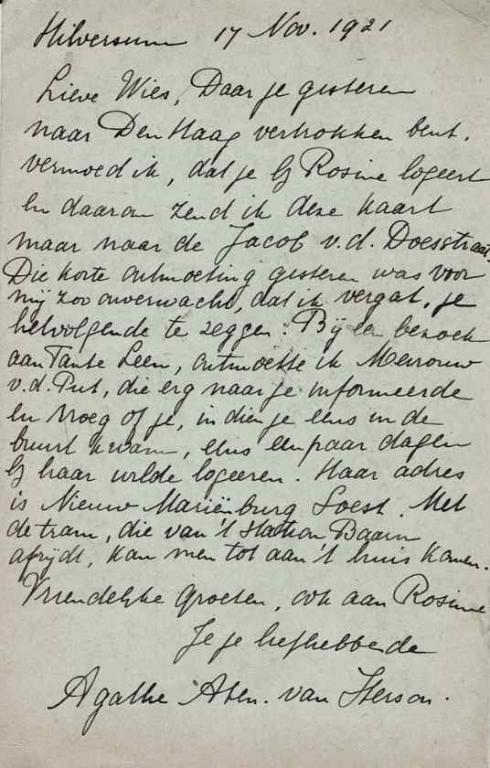 Hilversum 17 Nov. 1921
Lieve Wies, Daar je gisteren
naar Den Haag vertrokken bent,
vermoed ik, dat je bij Rosine logeert
en daarom zend ik deze kaart
maar naar de Jacob v.d. Doesstraat.
Die korte ontmoeting gisteren was voor
mij zoo onverwacht, dat ik vergat, je
hetvolgende te zeggen: Bij een bezoek
aan Tante Leen, ontmoette ik Mevrouw
v.d. Put, die erg naar je informeerde
en vroeg of je, indien je eens in de
buurt kwam, eens een paar dagen
bij haar wilde logeeren. Haar adres
is Nieuw Mariënburg Soest. Met
de tram, die van 't station Baarn
afrijdt, kan men tot aan 't huis komen.
Vriendelijke groeten, ook aan Rosine
Je je liefhebbende
Agathe van